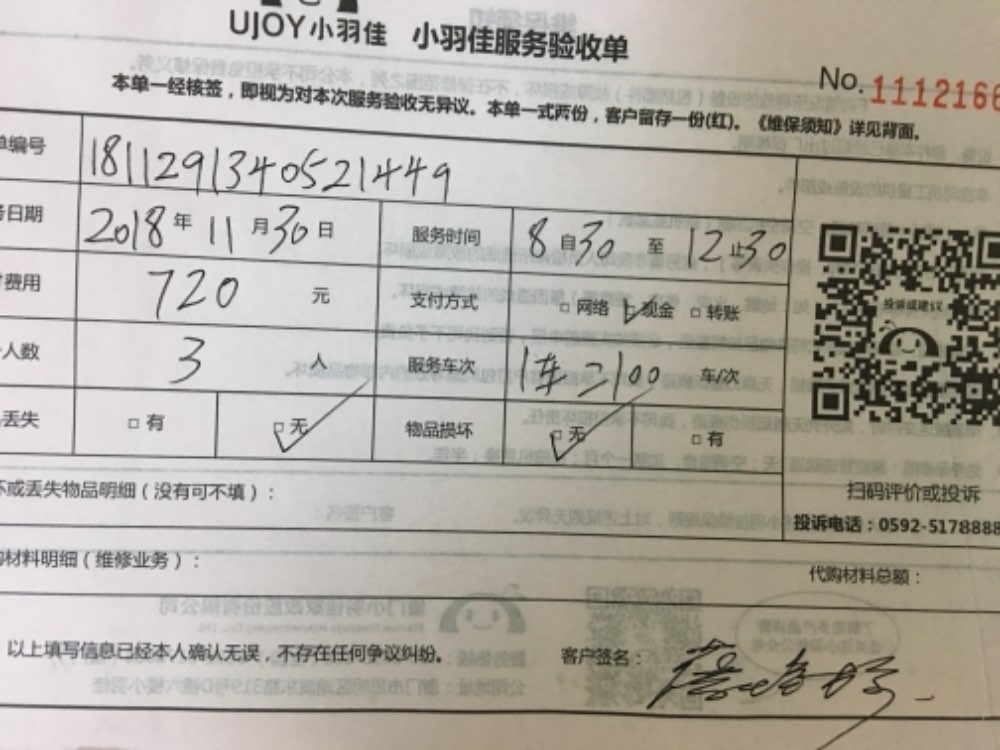 UJOY小羽佳 小羽佳服务验收单
No. 1112166
本单一经核签，即视为对本次服务验收无异议。本单一式两份，客户留存一份(红)。《维保须知》详见背面。
单编号 1811291340521449
务日期 2018年11月30日 服务时间 8自30至12止30
费用 720元 支付方式 □网络 □现金 □转账
人数 3人 服务车次 车/次
丢失 □有 □无 物品损坏 □无 □有
投诉或建议
坏或丢失物品明细（没有可不填）：
扫码评价或投诉
投诉电话：0592-5178888
购材料明细（维修业务）： 代购材料总额：
以上填写信息已经本人确认无误，不存在任何争议纠纷。 客户签名：